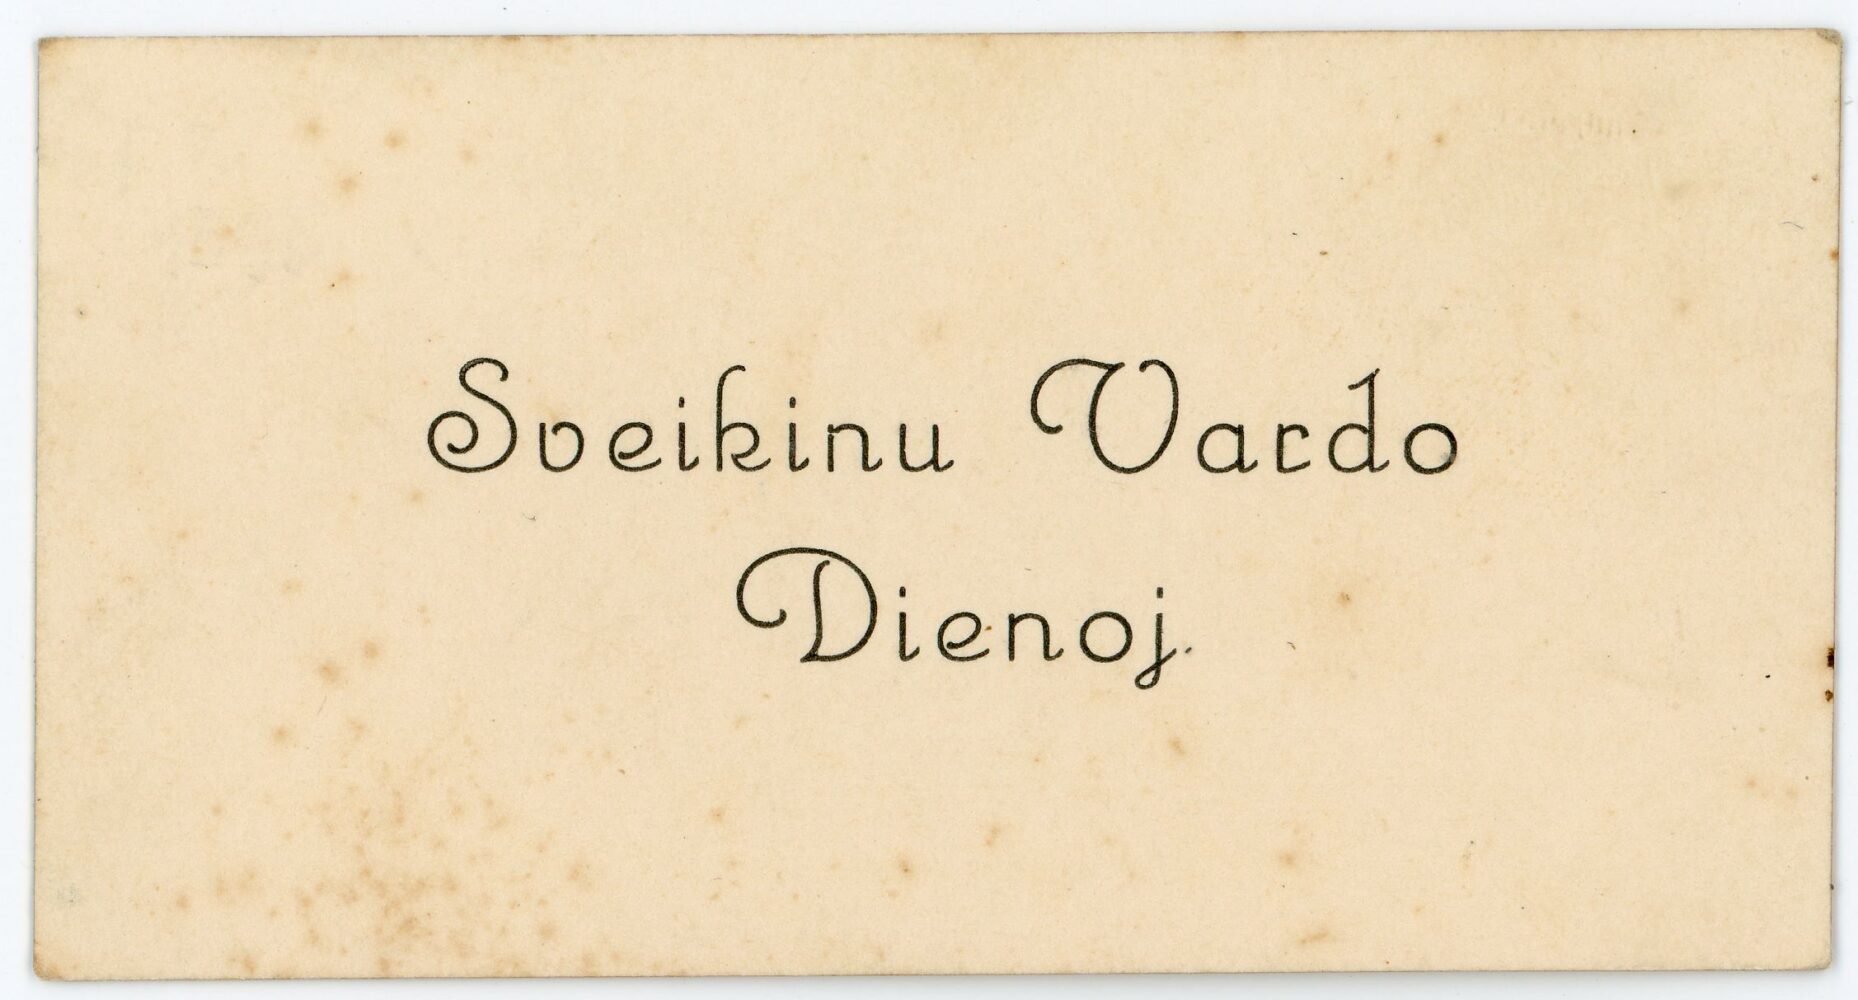 Sveikinu Vardo
Dienoj.